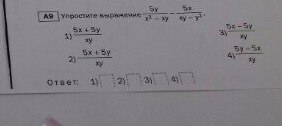 А9 Упростите выражение 5y/(x² − xy) − 5x/(xy − y²).
1) (5x + 5y)/xy
3) (5x − 5y)/xy
2) −(5x + 5y)/xy
4) (5y − 5x)/xy
Ответ: 1) 2) 3) 4)